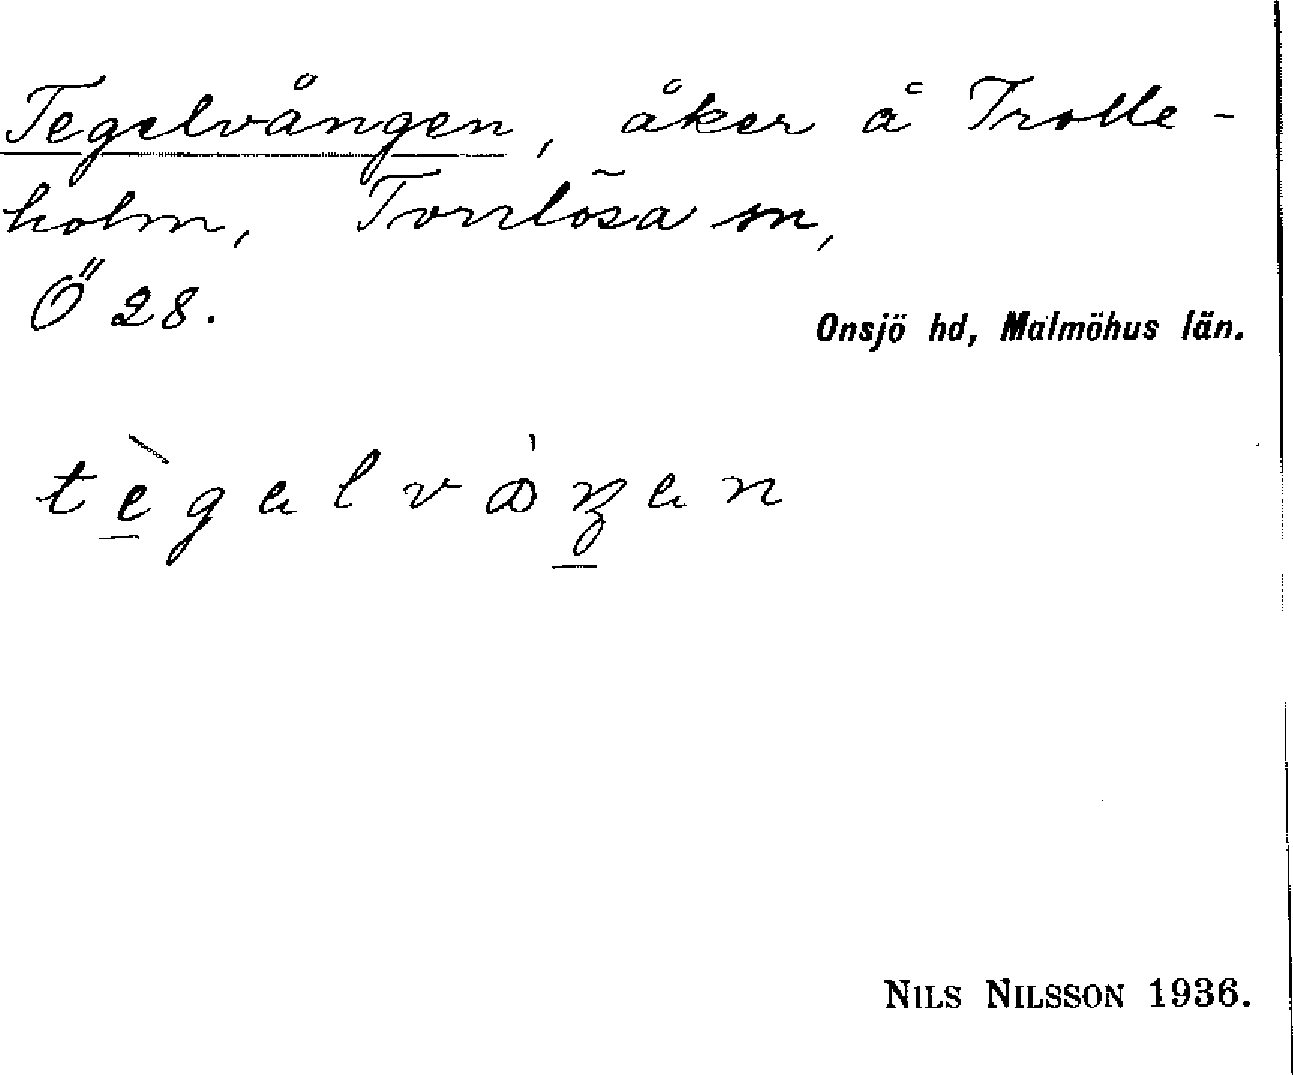 Tegelvången, åker å Trolle-
holm, Torrlösa sn,
Ö 28.
Onsjö hd, Malmöhus län.
NILS NILSSON 1936.